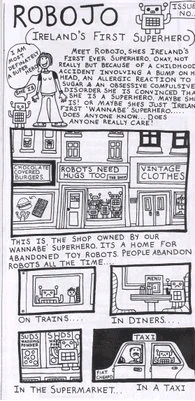 ROBOJO
ISSUE
NO.
(IRELAND'S FIRST SUPERHERO)
I AM
MOST
UNFORTUNATELY
A
SUPERHERO
SHE IS
MEET ROBOJO, SHES IRELAND'S
FIRST EVER SUPERHERO. OKAY, NOT
REALLY BUT BECAUSE OF A CHILDHOOD
ACCIDENT INVOLVING A BUMP ON H
HEAD, AN ALLERGIC REACTION TO
SUGAR & AN OBSESSIVE COMPULSIVE
DISORDER SHE IS CONVINCED THA
SHE IS A SUPERHERO. MAYBE SH
IS! OR MAYBE SHES JUST IRELAN
FIRST 'WANNABE' SUPERHERO....
ANYONE KNOW... DOES
ANYONE REALLY CARE?
CHOCOLATE
COVERED
BURGERS
ROBOTS NEED
HUGS TOO
VINTAGE
CLOTHES
THIS IS THE SHOP OWNED BY OUR
WANNABE SUPERHERO. ITS A HOME FOR
ABANDONED TOY ROBOTS. PEOPLE ABANDON
ROBOTS ALL THE TIME....
MENU
ON TRAINS....
IN DINERS....
SUDS
WASHING
POWDER
SUDS
TAXI
FIAT
CHEAPO
IN THE SUPERMARKET...
IN A TAXI